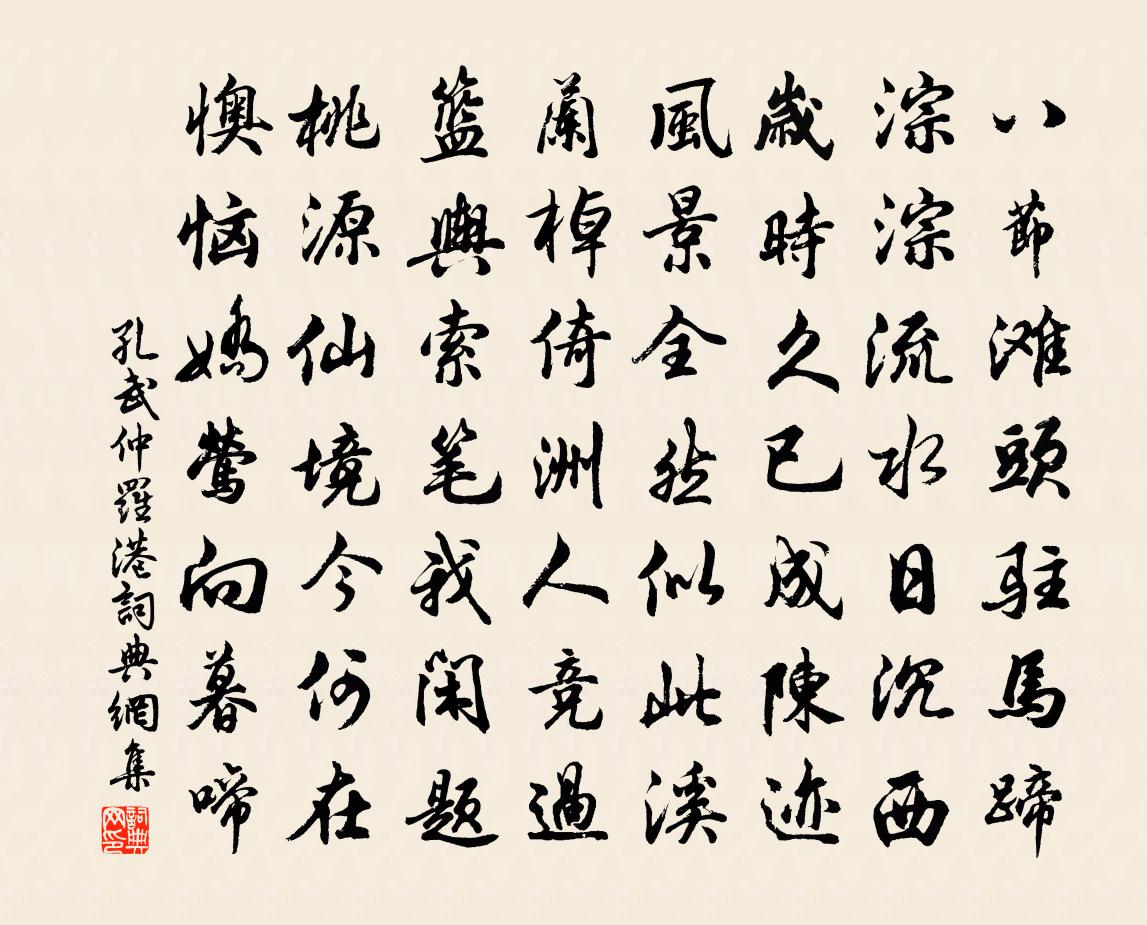 八節滩頭駐馬蹄
淙淙流水日沉西
歳時久已成陳迹
風景全然似此溪
蘭棹倚洲人竞過
籃輿索笔我闲题
桃源仙境今何在
懊恼嬌鶯向暮啼
孔武仲羅港詞典網集
詞典网印